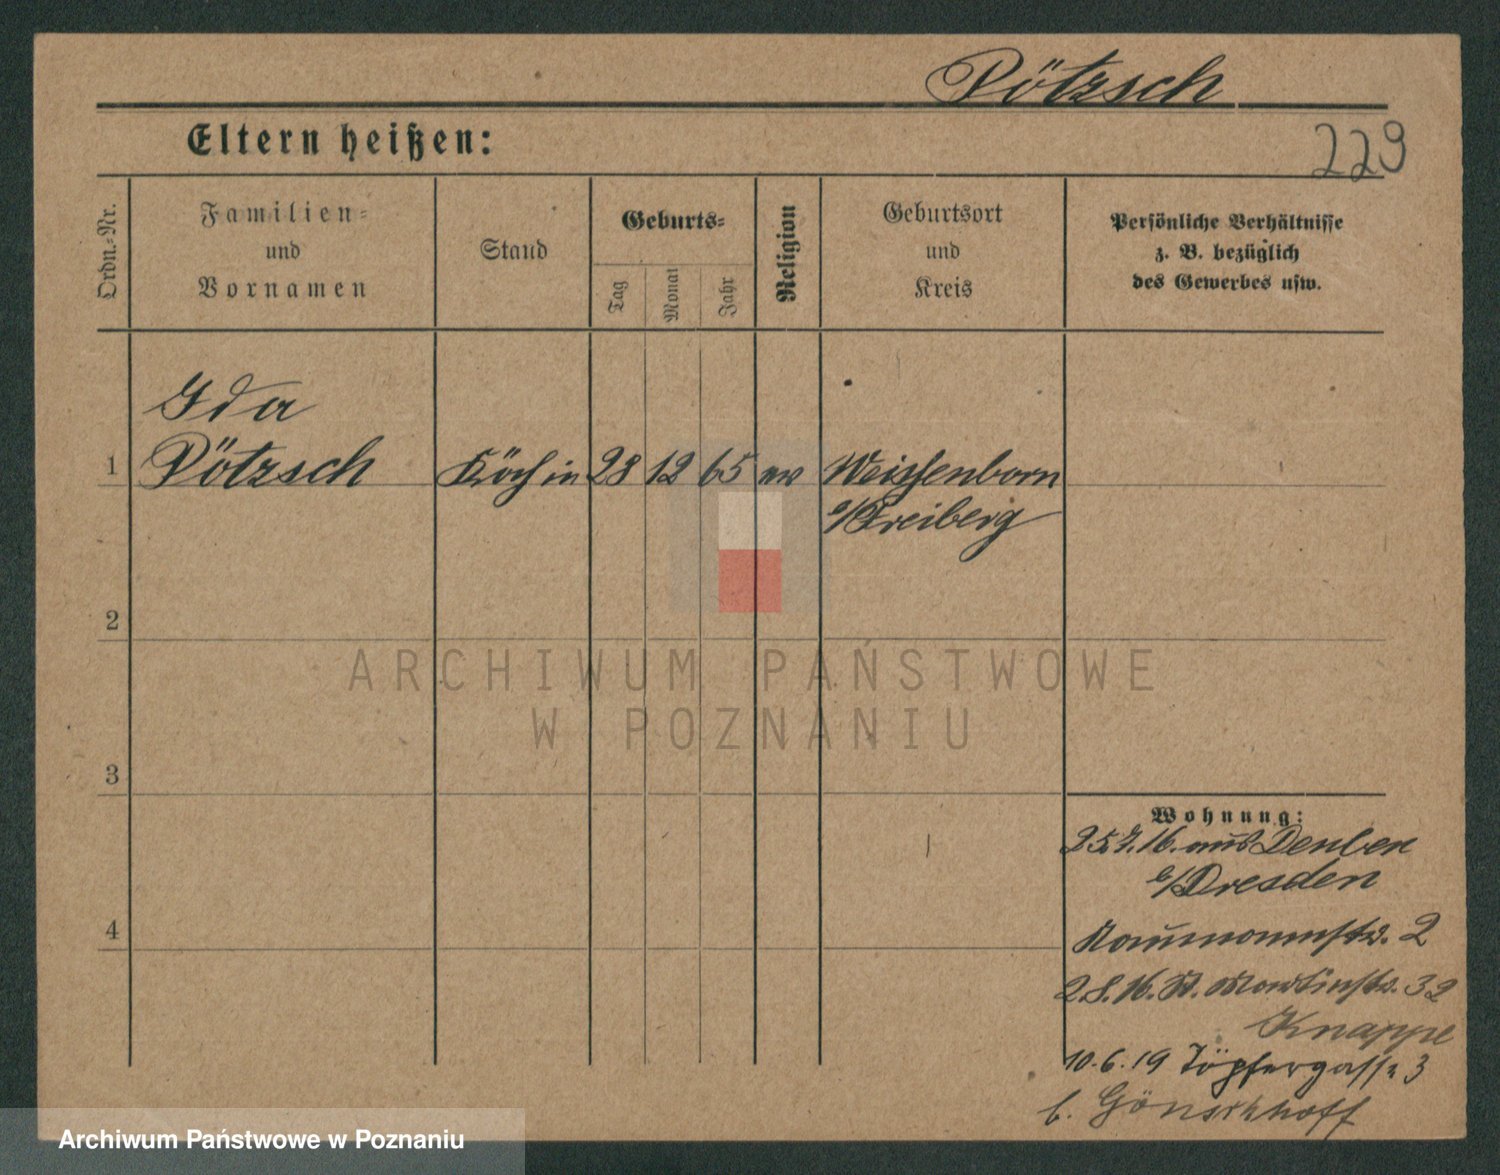 Pötzsch
Eltern heißen:
229
Ordn.-Nr.
Familien-
und
Vornamen
Stand
Geburts-
Tag
Monat
Jahr
Religion
Geburtsort
und
Kreis
Persönliche Verhältnisse
z. B. bezüglich
des Gewerbes usw.
Ida
1 Pötzsch Köchin 28 12 65 ev Weissenborn
b/Freiberg
2
3
4
Wohnung:
25.7.16. aus Deuben
b/Dresden
Naumannstr. 2
2.8.16. St. Martinstr. 32
Knappe
10.6.19 Töpfergasse 3
b. Gönschhoff
ARCHIWUM PAŃSTWOWE
W POZNANIU
Archiwum Państwowe w Poznaniu